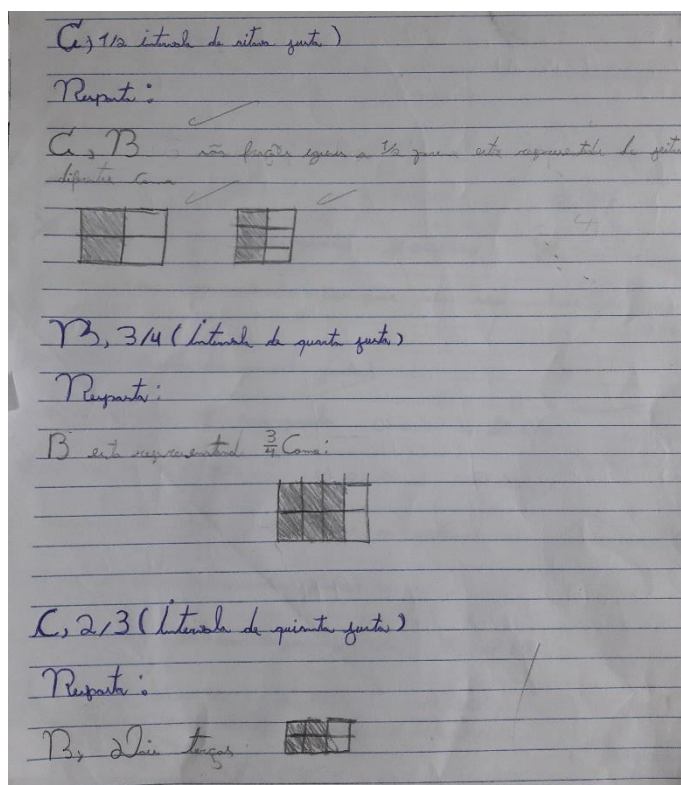 a, 1/2 intervalo de oitava justa)
Resposta:
a, B são frações iguais a 1/2 esta representada de jeito
diferente Como
B, 3/4 (intervalo de quarta justa)
Resposta:
B esta representand 3/4 Como:
C, 2/3 (intervalo de quinta justa)
Resposta:
B, Dois terços